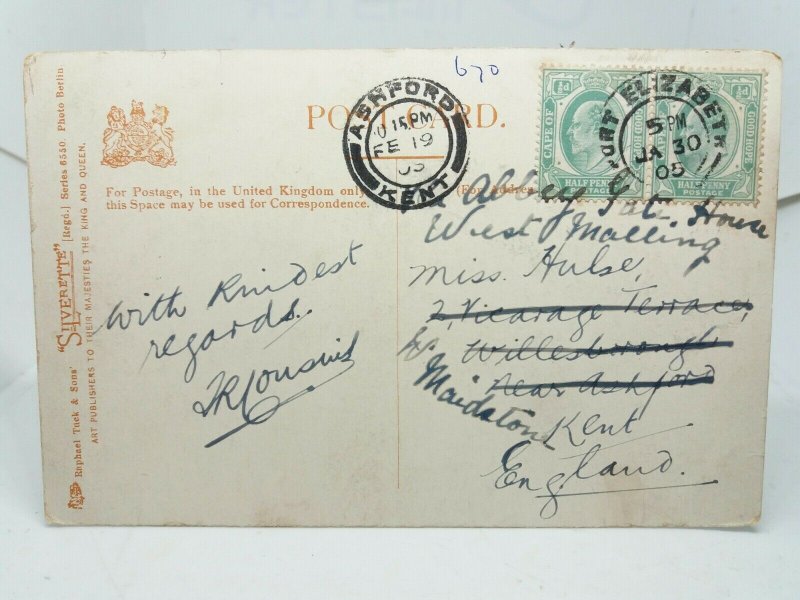 670
POST CARD.
ASHFORD
15 PM
FE 19
05
KENT
CAPE OF GOOD HOPE
HALFPENNY
½d
GOOD HOPE
HALFPENNY
POSTAGE
PORT ELIZABETH
5 PM
JA 30
05
For Postage, in the United Kingdom only
this Space may be used for Correspondence.
(For Address
Abbey Gate House
West Malling
Miss Hulse,
2, Vicarage Terrace,
Willesborough
near Ashford
Maidstone
Kent
England.
With Kindest
regards.
Raphael Tuck & Sons' "SILVERETTE" [Regd.] Series 6550. Photo Berlin
ART PUBLISHERS TO THEIR MAJESTIES THE KING AND QUEEN.